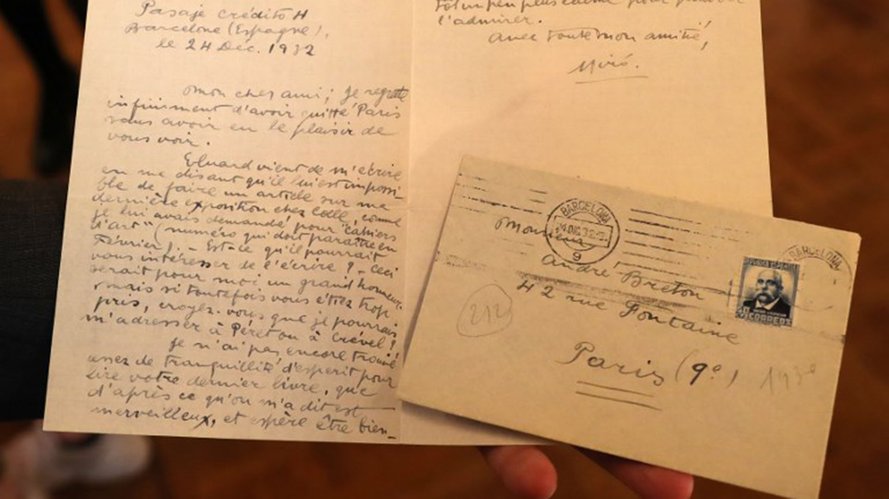 Pasaje Crédito 4
Barcelone (Espagne),
le 24 Déc. 1932
mon cher ami; je regrette
infiniment d'avoir quitté Paris
sans avoir eu le plaisir de
vous voir.
Eluard vient de m'écrire
en me disant qu'il lui est impossi-
ble de faire un article sur ma
dernière exposition chez Colle, comme
je lui avais demandé, pour "Cahiers
d'art" (numéro qui doit paraître en
Février). - Est ce qu'il pourrait
vous intéresser de l'écrire? - Ceci
serait pour moi un grand honneur.
mais si toutefois vous êtes trop
pris, croyez-vous que je pourrais
m'adresser à Péret ou à Crevel?
Je n'ai pas encore trouvé
assez de tranquillité d'esperit pour
lire votre dernier livre, que
d'après ce qu'on m'a dit est
merveilleux, et espère être bien-
tôt un peu plus calme pour pouvoir
l'admirer.
avec toute mon amitié,
Miró.
BARCELONA
9
Monsieur
André Breton
42 rue Fontaine
Paris (9e)
212
BARCELONA
CORREOS